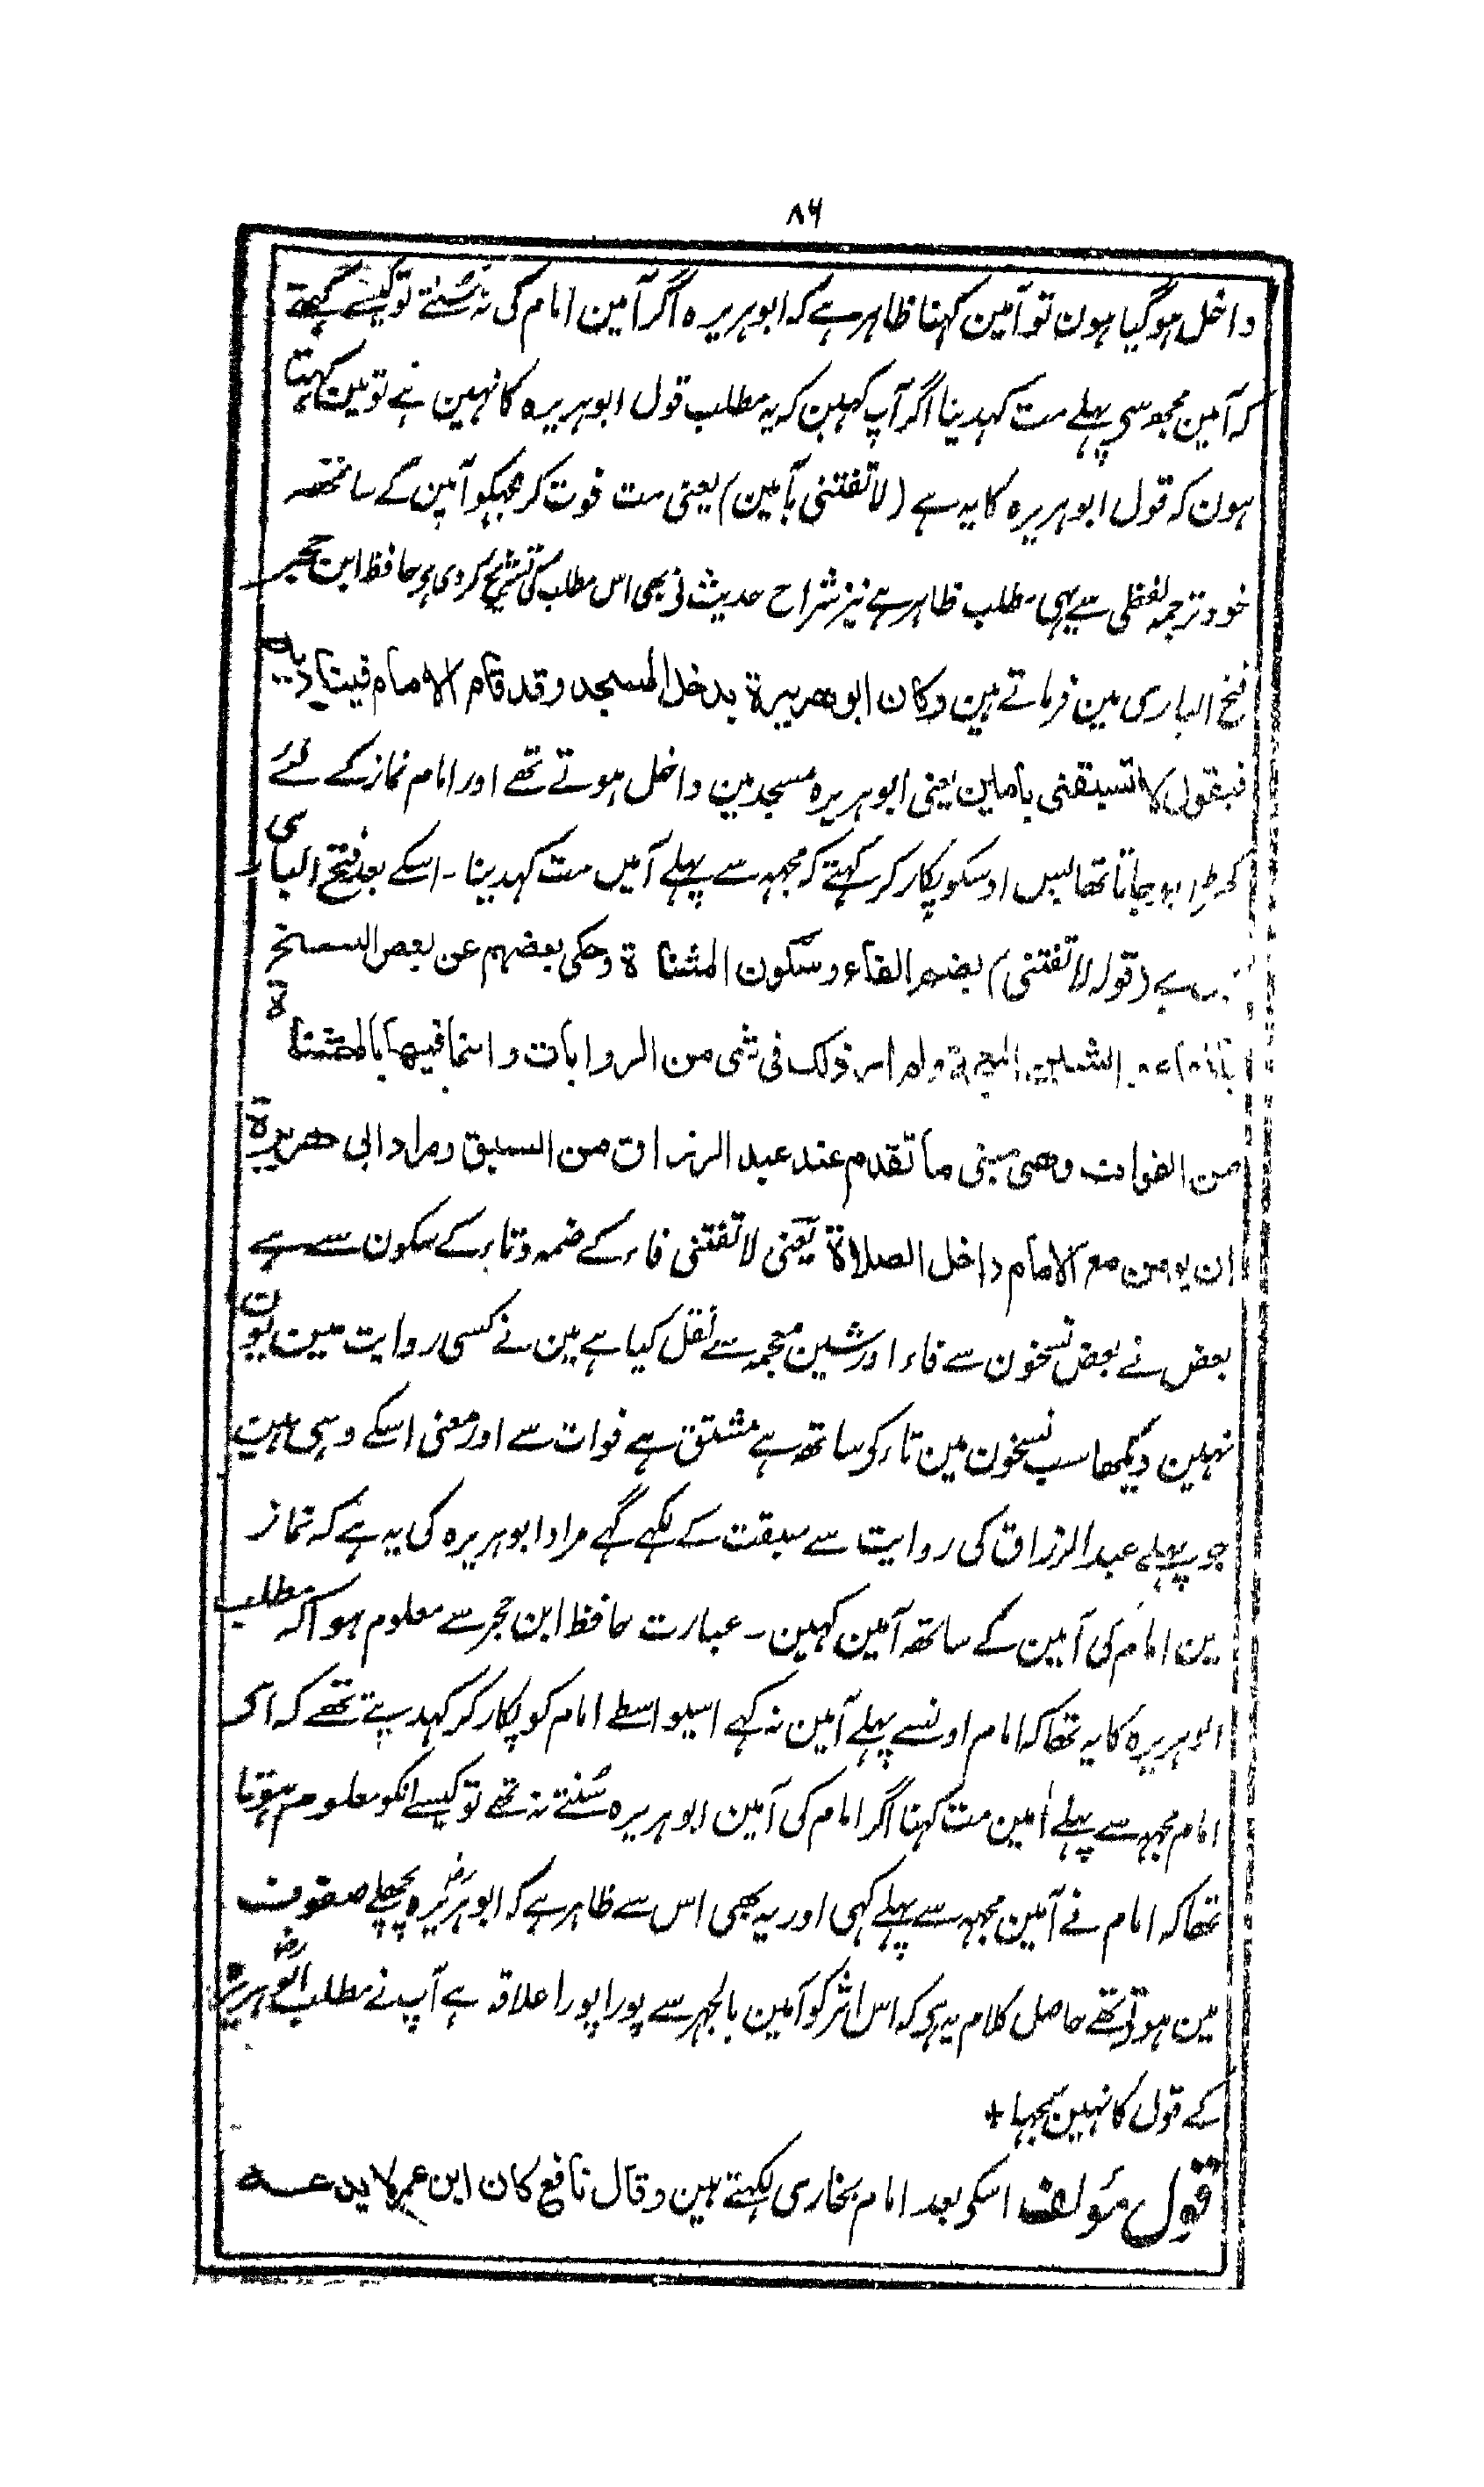 ۸۶
داخل ہوگیا ہون تو آمین کہنا ظاہر ہے کہ ابوہریرہ اگر آمین امام کی نہ سُنتے تو کیسے کہتے
کہ آمین مجھ سی پہلے مت کہدینا اگر آپ کہین کہ یہ مطلب قول ابوہریرہ کا نہین ہے تو مین کہتا
ہون کہ قول ابوہریرہ کا یہ ہے (لا تفتنی بآمین) یعنی مت فوت کر مجہکو آمین کے ساتھہ
خود ترجمہ لفظی سے یہی مطلب ظاہر ہے نیز شراح حدیث نی بھی اس مطلب کی تشریح کردی ہی حافظ ابن حجر
فتح الباری مین فرماتے ہین وکان ابوهريرة يدخل المسجد وقد قام الامام فيناديه
فيقول لا تسبقنی بآمین یعنی ابوہریرہ مسجد مین داخل ہوتے تھے اور امام نماز کے لئے
کھڑا ہو جاتا تھا پس اوسکو پکار کر کہتے کہ مجہہ سے پہلے آمیں مت کہدینا ۔ اسکے بعد فتح الباری
ہے (قولہ لا تفتنی) بضم الفاء وسکون المثناة وحکی بعضہم عن بعض النسخ
الشین المعجمة ولم ار ذلک فی شی من الروایات وانما فیها بالمثناة
من الفوات وهی مبنی ما تقدم عند عبد الرزاق من السبق ومراد ابی هریرة
ان یومن مع الامام داخل الصلاة یعنی لا تفتنی فاء کے ضمہ و تاء کے سکون سے ہے
بعض نے بعض نسخون سے فاء اور شین معجمہ سے نقل کیا ہے مین نے کسی روایت مین یون
نہین دیکھا سب نسخون مین تاء کو ساتھ ہے مشتق ہے فوات سے اور معنی اسکے وہی ہین
جو پہلے عبد الرزاق کی روایت سے سبقت کے لکہے گہے مراد ابوہریرہ کی یہ ہے کہ نماز
ین امام کی آمین کے ساتھ آمین کہین ۔ عبارت حافظ ابن حجر سے معلوم ہوا کہ مطلب
ابوہریرہ کا یہ تھا کہ امام اونسے پہلے آمین نہ کہے اسیواسطے امام کو پکار کر کہدیتے تھے کہ اے
امام مجہہ سے پہلے آمین مت کہنا اگر امام کی آمین ابوہریرہ سُنتے نہ تھے تو کیسے انکو معلوم ہوتا
تھا کہ امام نے آمین مجہہ سے پہلے کہی اور یہ بھی اس سے ظاہر ہے کہ ابوہریرہؓ پچھلے صفوف
مین ہوتی تھے حاصل کلام یہ ہی کہ اس اثر کو آمین بالجہر سے پورا پورا علاقہ ہے آپ نے مطلب ابوہریرہؓ
کے قول کا نہین سمجہا +
قول مؤلف اسکو بعد امام بخاری لکہتے ہین وقال نافع کان ابن عمر لا یدعه